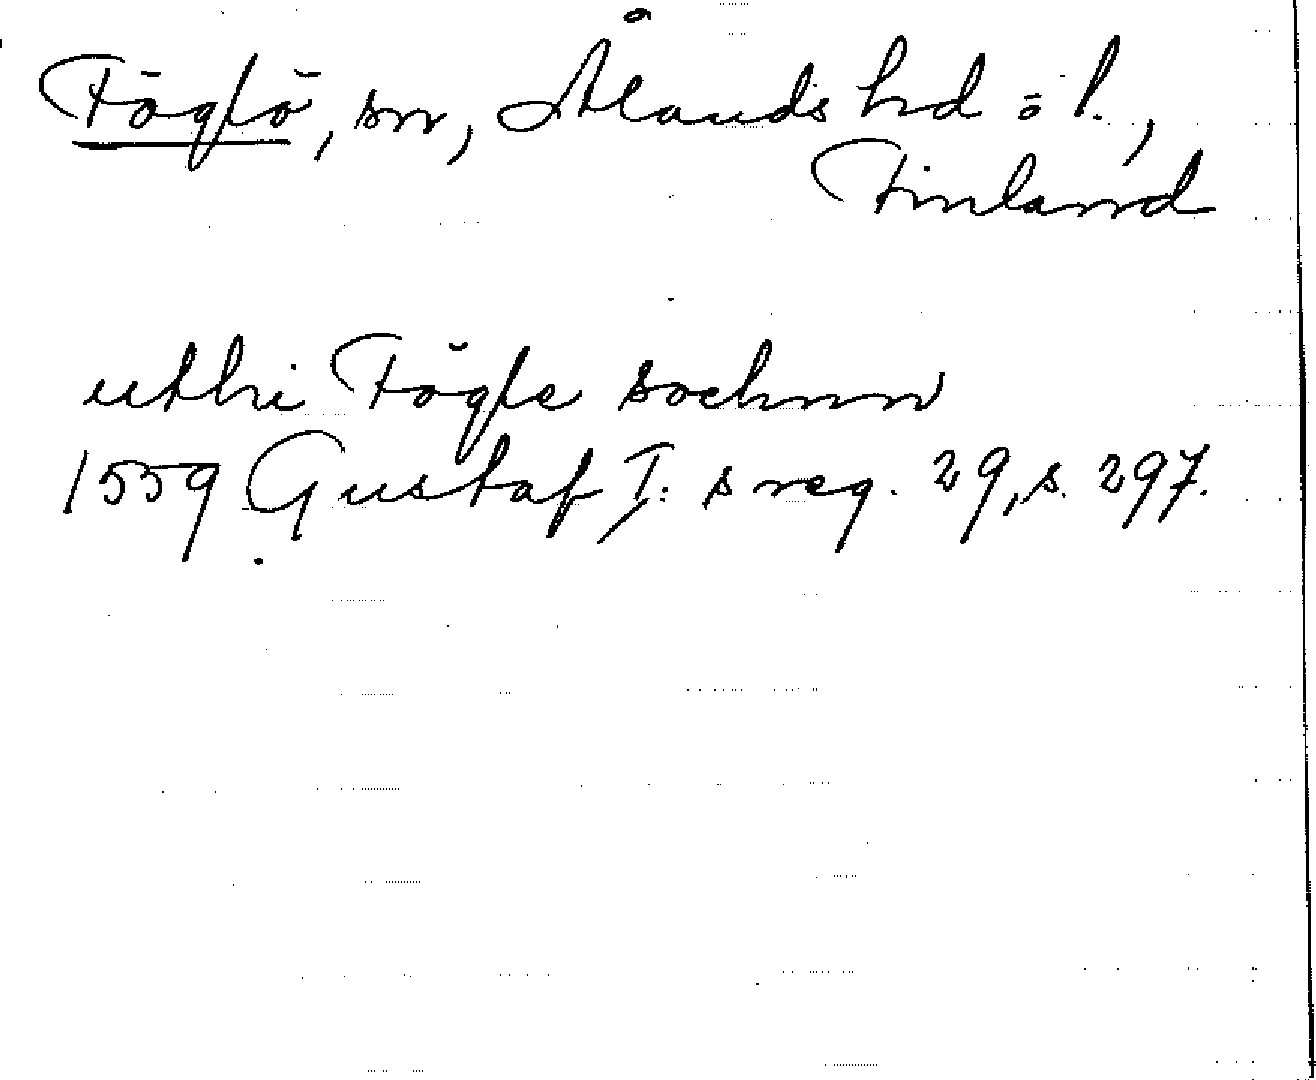 Föglö, sn, Ålands hd o l.,
Finland
uthi Fögle sochnn
1559 Gustaf I:s reg. 29, s. 297.